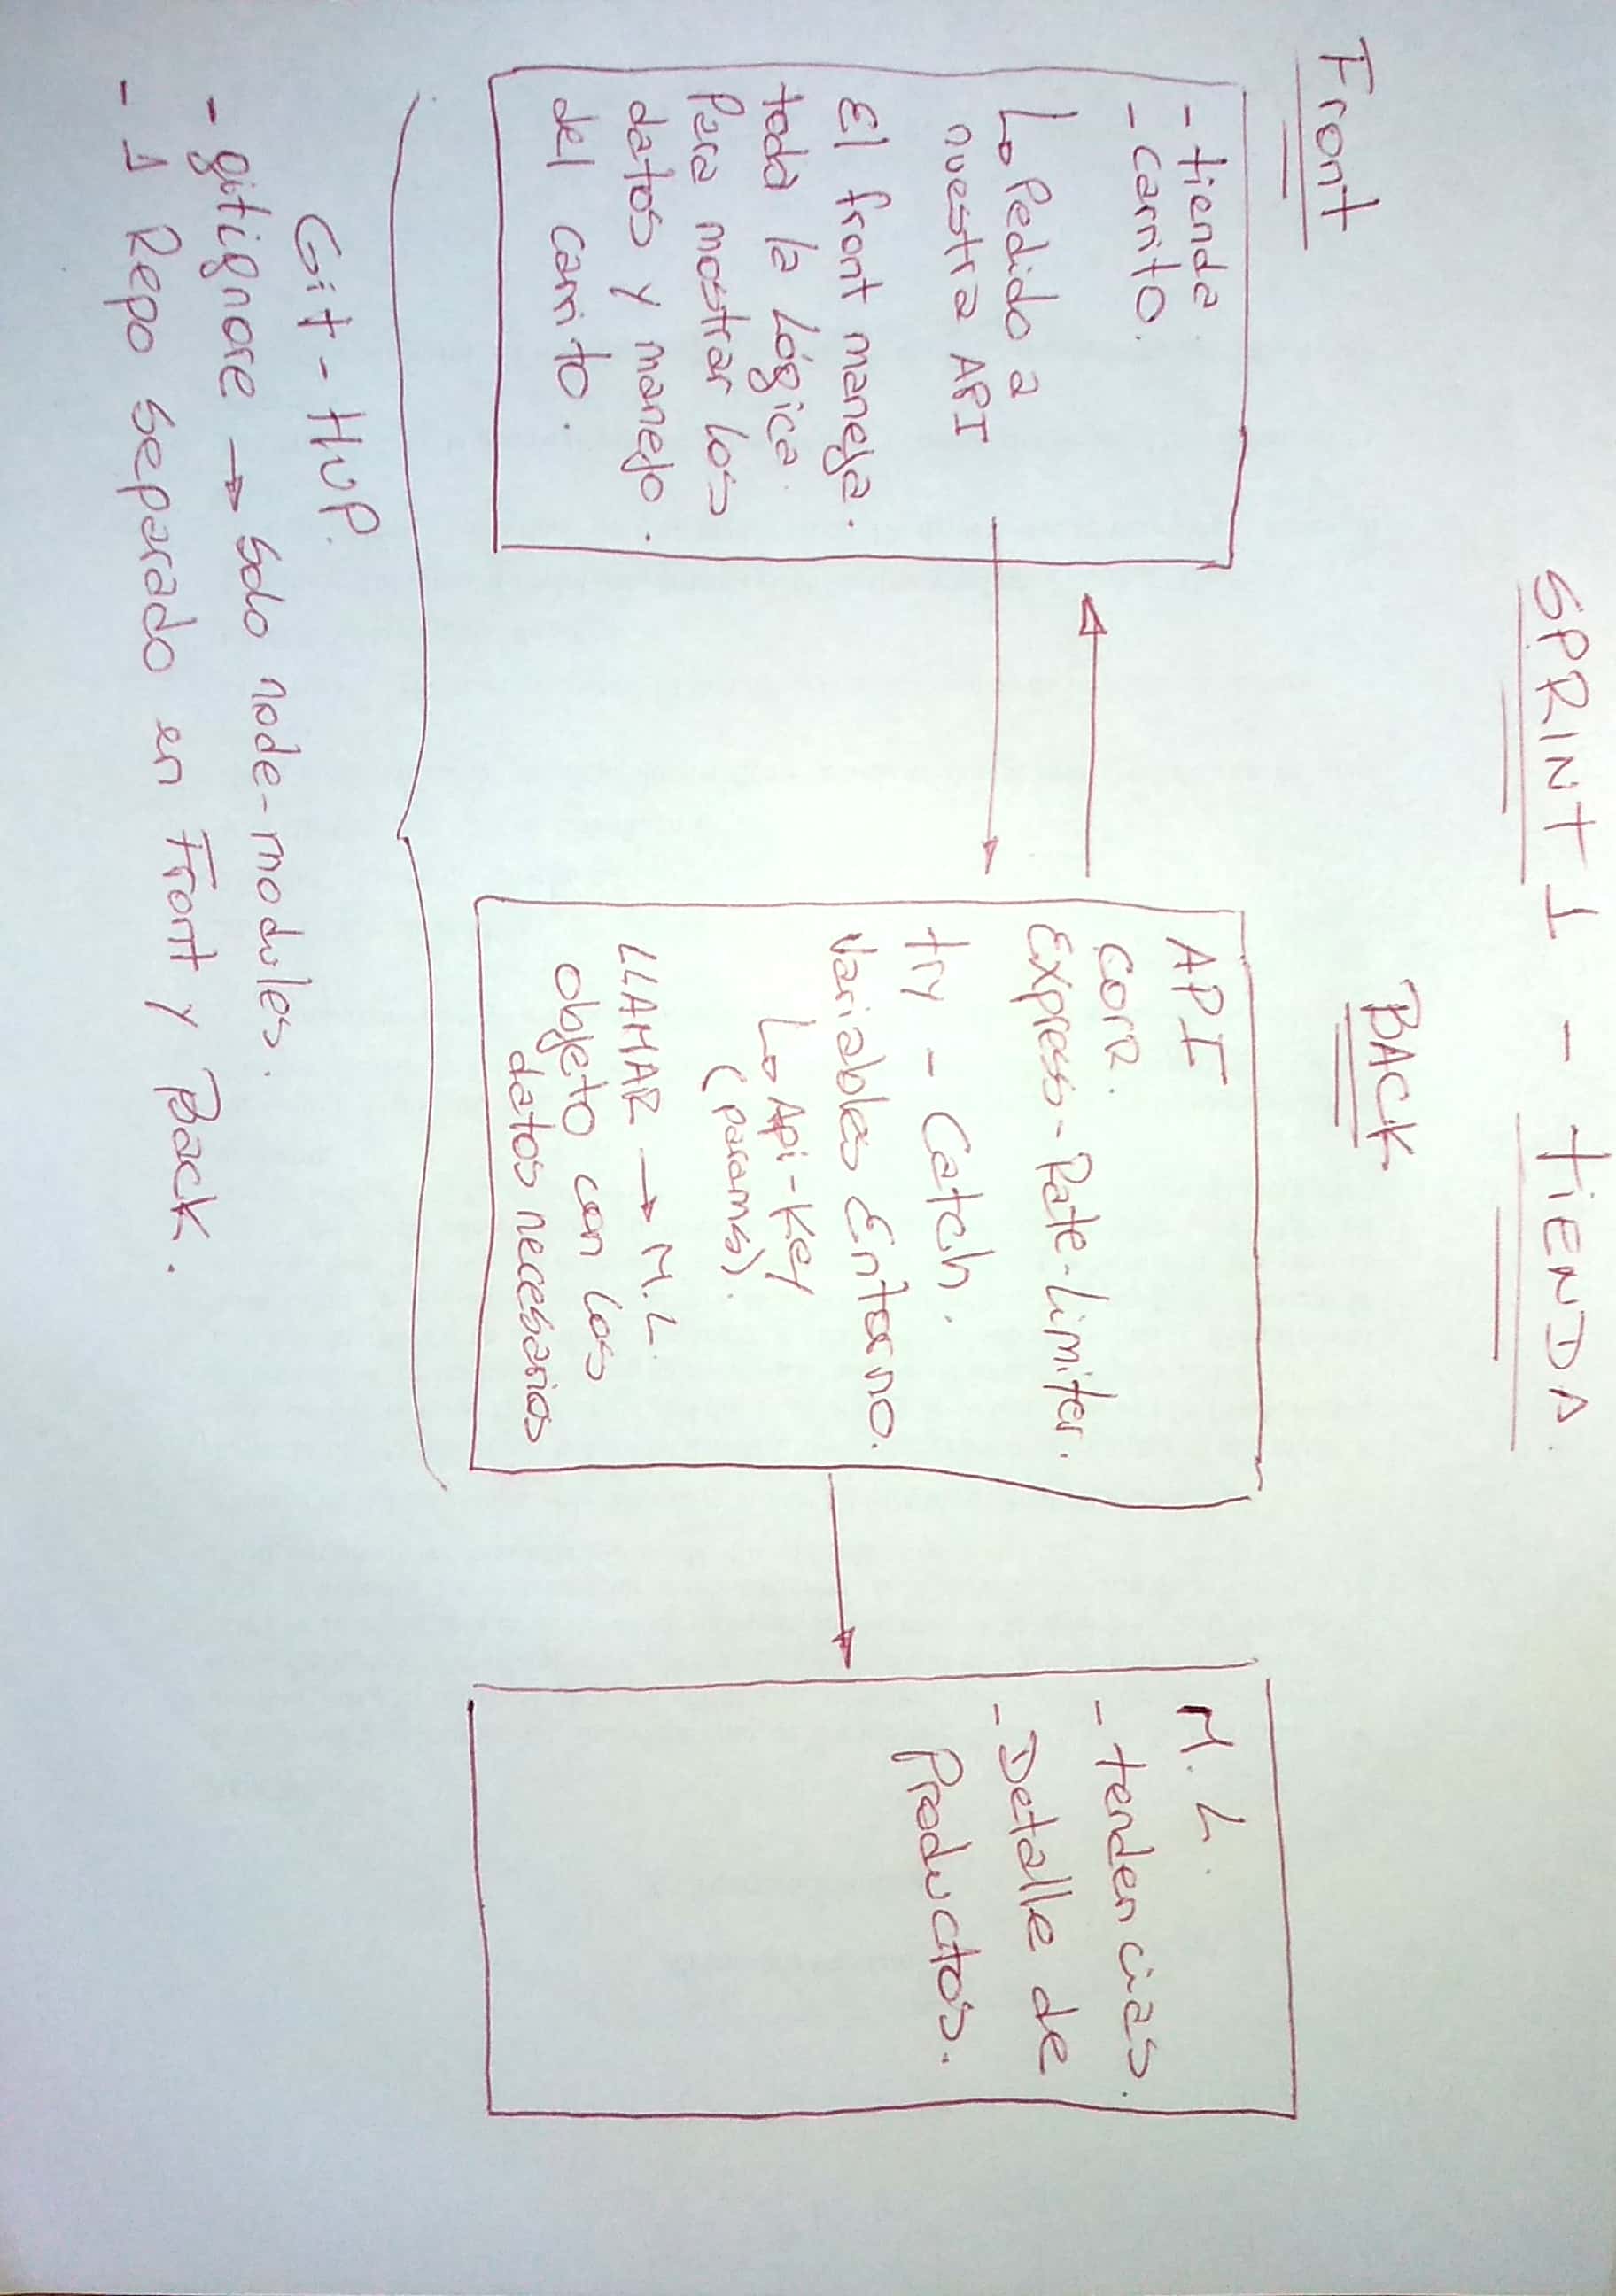 SPRINT 1 - tIENDA.
BACK
Front
- tienda
- carrito.
↳ Pedido a
nuestra API
El front maneja.
toda la Lógica
Para mostrar los
datos y manejo.
del carrito.
API
CorR.
Express-Rate-Limiter.
try - Catch.
Variables Entorno.
↳ Api-Key
(params).
LLAMAR → M.L.
objeto con los
datos necesarios
M. L.
- tendencias.
- Detalle de
Productos.
Git-HUP.
- gitignore → Solo node-modules.
- 1 Repo separado en Front y Back.